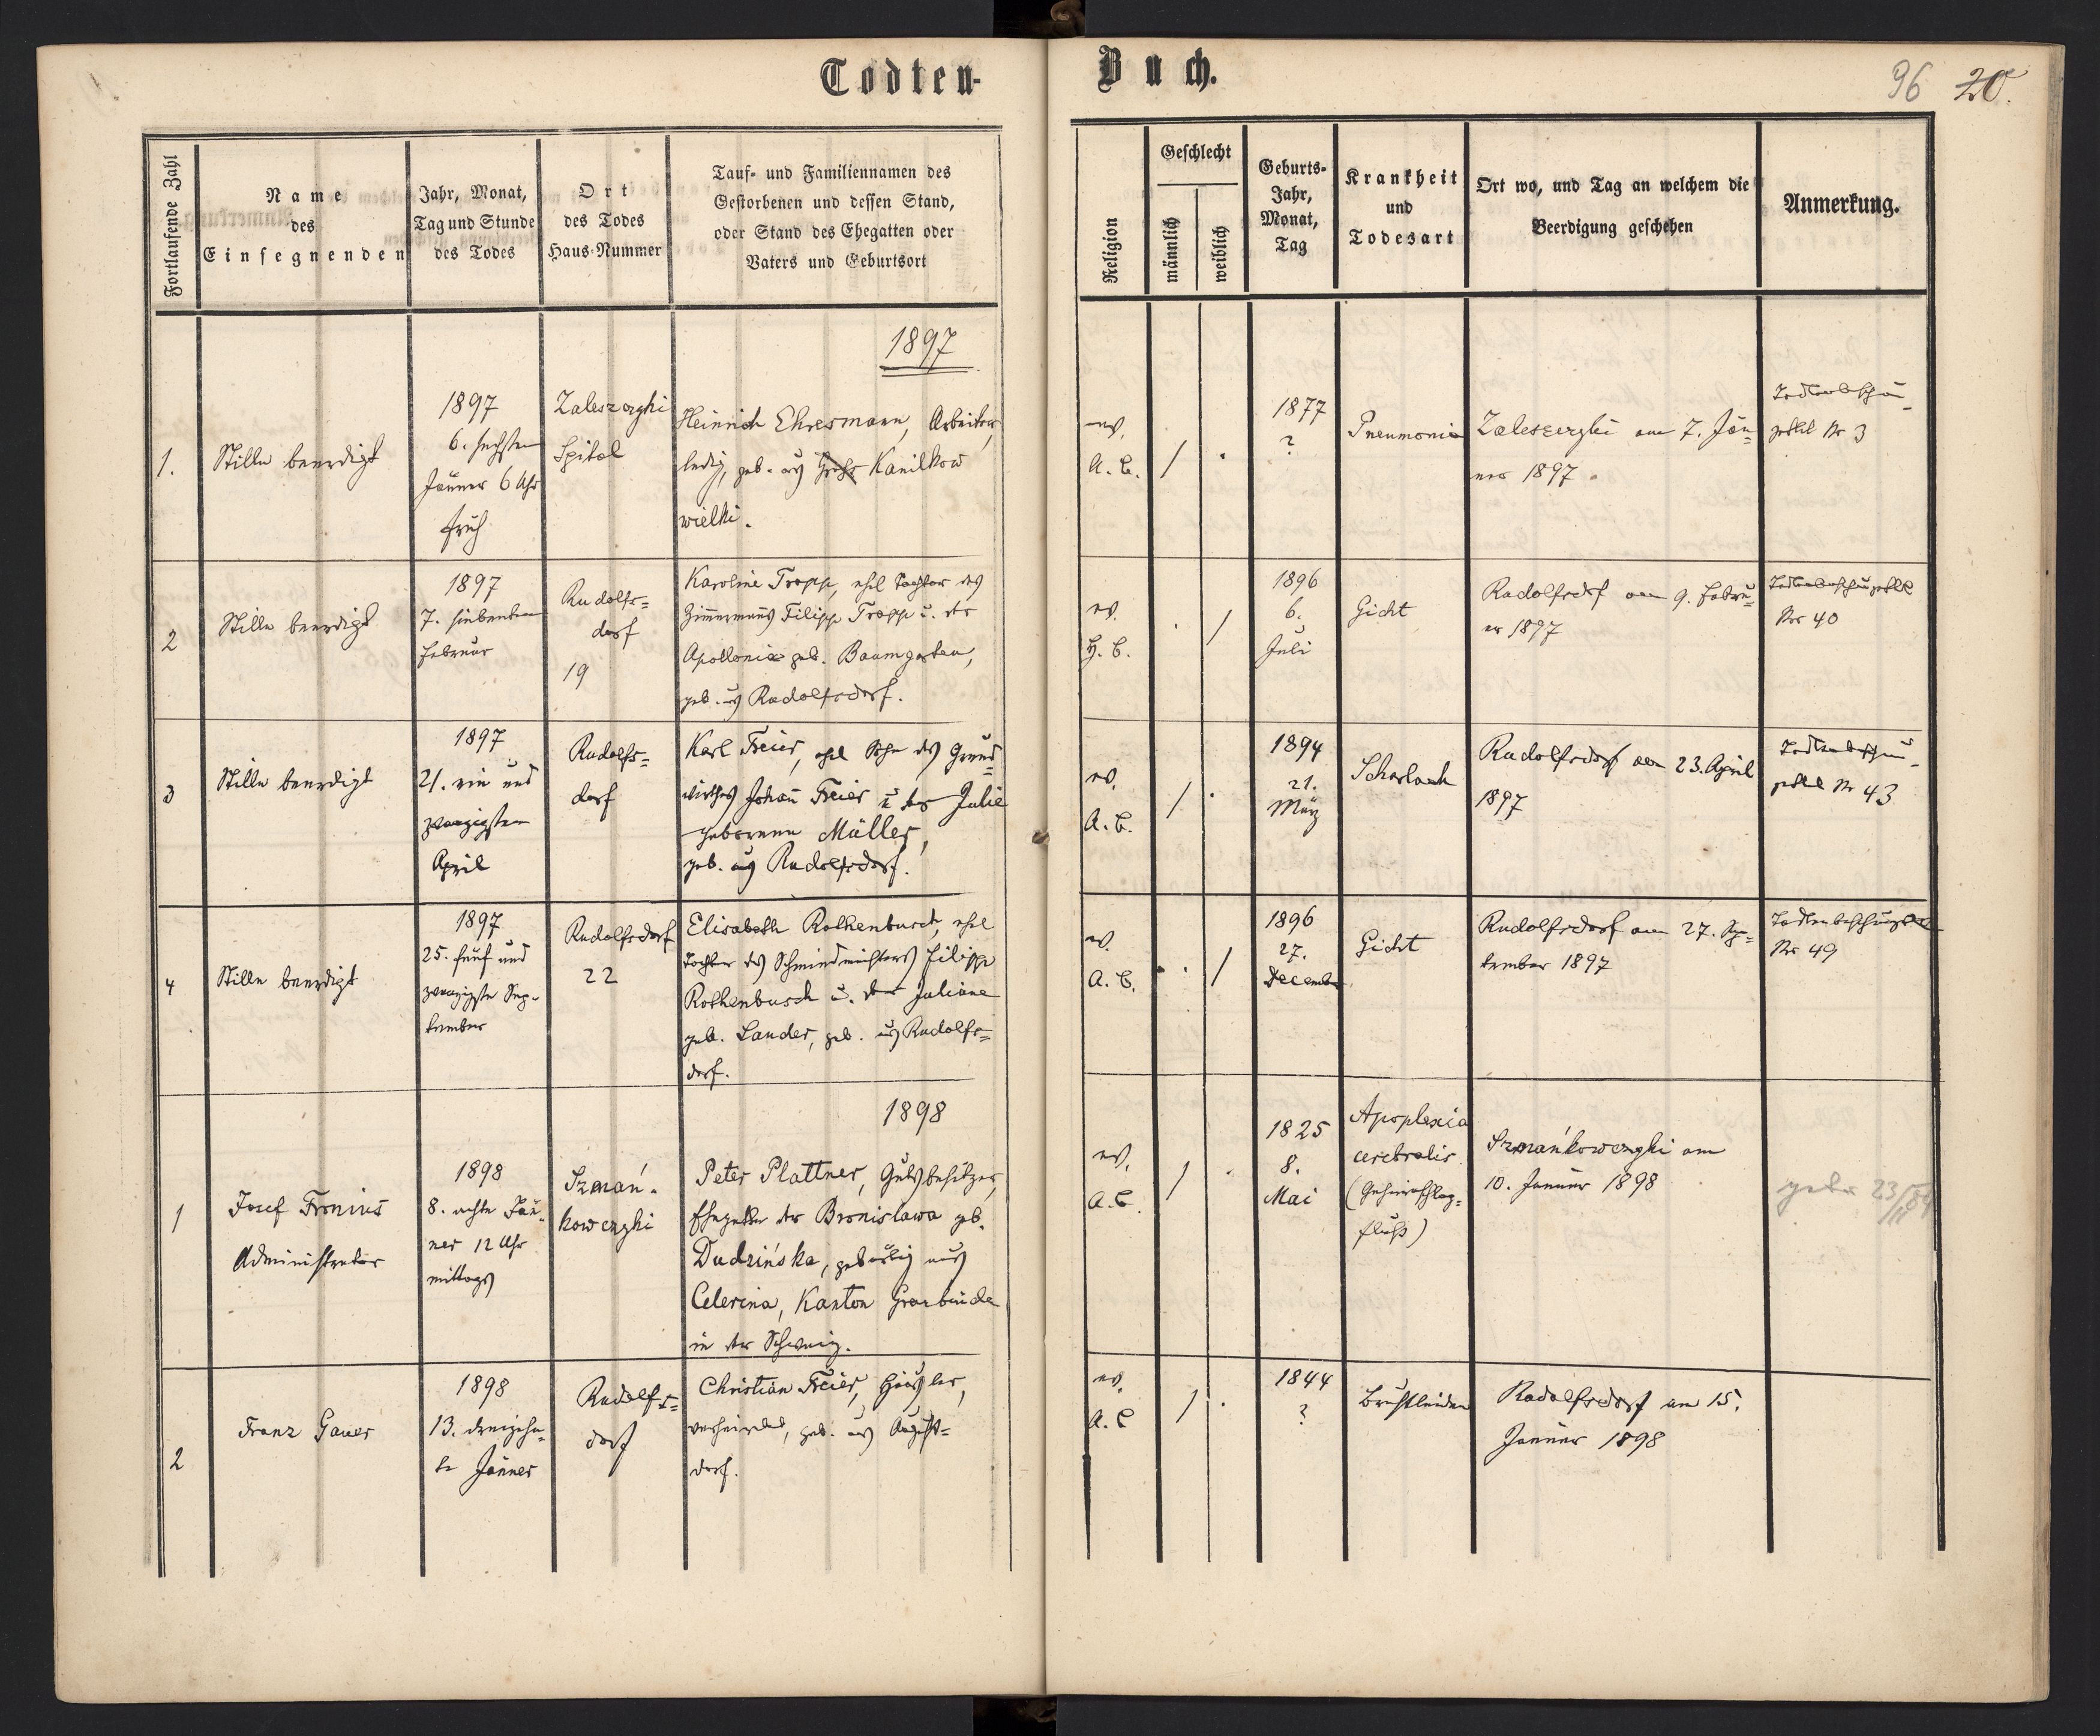 Todten-
Buch.
96 20.
Fortlaufende Zahl
Name
des
Einsegnenden
Jahr, Monat,
Tag und Stunde
des Todes
Ort
des Todes
Haus-Nummer
Tauf- und Familiennamen des
Gestorbenen und dessen Stand,
oder Stand des Ehegatten oder
Vaters und Geburtsort
Religion
Geschlecht
männlich
weiblich
Geburts-
Jahr,
Monat,
Tag
Krankheit
und
Todesart
Ort wo, und Tag an welchem die
Beerdigung geschehen
Anmerkung.
1897
1.
Stille beerdigt
1897
6. sechsten
Jänner 6 Uhr
früh
Zaleszczyki
Spital
Heinrich Ehresmann, Arbeiter,
ledig, geb. aus Kanilkow
wielki.
ev.
A. C.
/ .
1877
?
Pneumonie
Zaleszczyki am 7. Jän-
ner 1897.
Todtenbeschau-
zettel Nr 3
2
Stille beerdigt
1897
7. siebenten
Februar
Rudolfs=
dorf
19
Karoline Tropp, ehel Tochter des
Zimmermanns Filipp Tropp u. der
Apollonia geb. Baumgarten,
geb. aus Rudolfsdorf.
ev.
H. C.
. /
1896
6.
Juli
Gicht
Rudolfsdorf am 9. Febru=
ar 1897
Todtenbeschauzettel
Nr 40
3
Stille beerdigt
1897
21. ein und
zwanzigsten
April
Rudolfs=
dorf
Karl Freier, ehel Sohn des Grund=
wirthes Johann Freier u der Julie
geborenen Müller,
geb. aus Rudolfsdorf.
ev.
A. C.
/ .
1894
21.
März
Scharlach
Rudolfsdorf am 23. April
1897
Todtenbeschau-
zettel Nr 43
4
Stille beerdigt
1897
25. fünf und
zwanzigste Sep-
tember
Rudolfsdorf
22
Elisabeth Rothenbusch, ehel
Tochter des Schmiedmeisters Filipp
Rothenbusch u. der Juliane
geb. Lander, geb. aus Rudolfs=
dorf.
ev.
A. C.
. /
1896
27.
December
Gicht
Rudolfsdorf am 27. Sep=
tember 1897
Todtenbeschauzettel
Nr 49
1898
1
Josef Fronius
Administrator
1898
8. achte Jän-
ner 12 Uhr
mittags
Szmań-
kowczyki
Peter Plattner, Gutsbesitzer,
Ehegatte der Bronislawa geb.
Dudzińska, gebürtig aus
Celerina, Kanton Graubünden
in der Schweiz.
ev.
A. C.
/ .
1825
8.
Mai
Apoplexia
cerebralis
(Gehirnschlag-
fluss)
Szmańkowczyki am
10. Januar 1898
2
Franz Gauer
1898
13. dreizehn-
te Jänner
Rudolfs=
dorf
Christian Freier, Häusler,
verheiratet, geb. aus August=
dorf.
ev.
A. C
/ .
1844
?
Brustleiden
Rudolfsdorf am 15.
Januar 1898